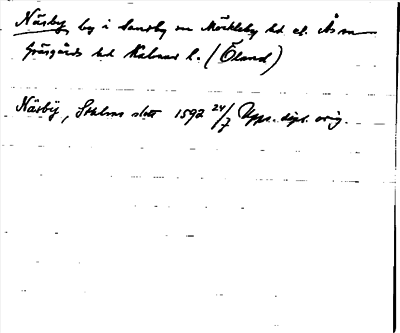 Näsby by i Sandby sn Möckleby hd el. Ås sn
Gräsgårds hd Kalmar l. (Öland)
Näsbÿ, Sthlms slott 1592 24/7 Upps. dipl. orig.